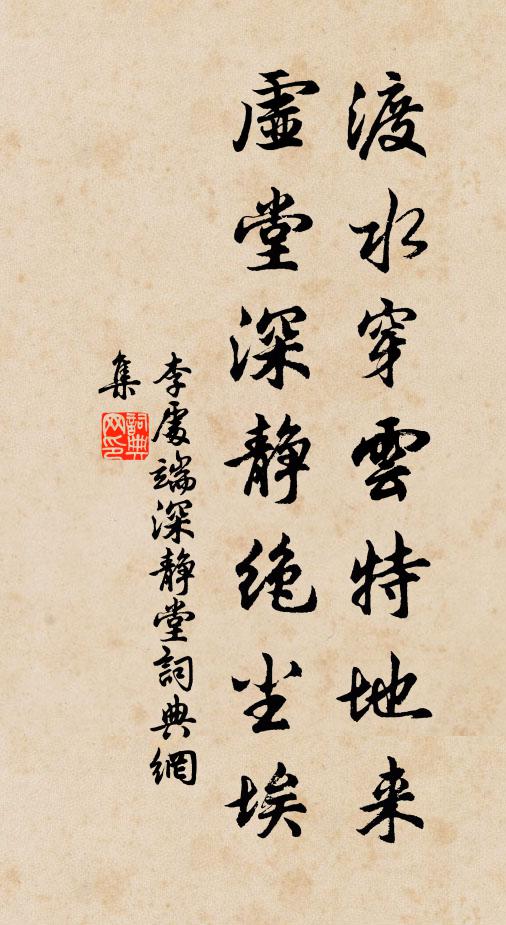 渡水穿雲特地来
虚堂深静绝尘埃
李處端深静堂詞典網
集
詞典
网印